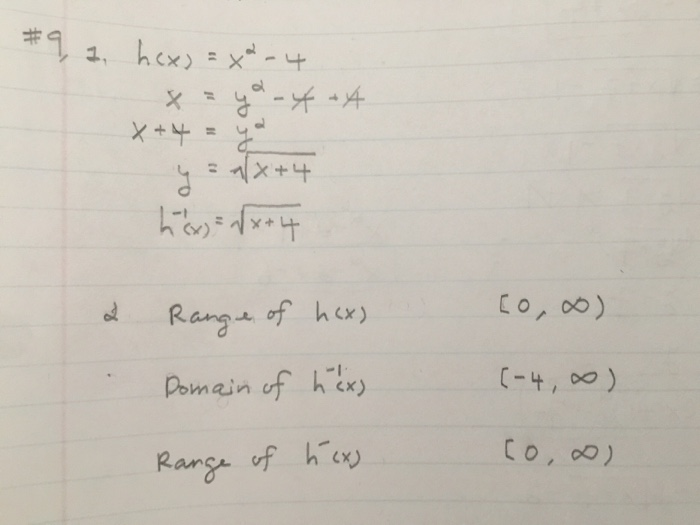 #9, 1. h(x) = x² - 4
x = y² - 4 + 4
x + 4 = y²
y = √x+4
h⁻¹(x) = √x+4
2 Range of h(x) [0, ∞)
Domain of h⁻¹(x) [-4, ∞)
Range of h⁻(x) [0, ∞)